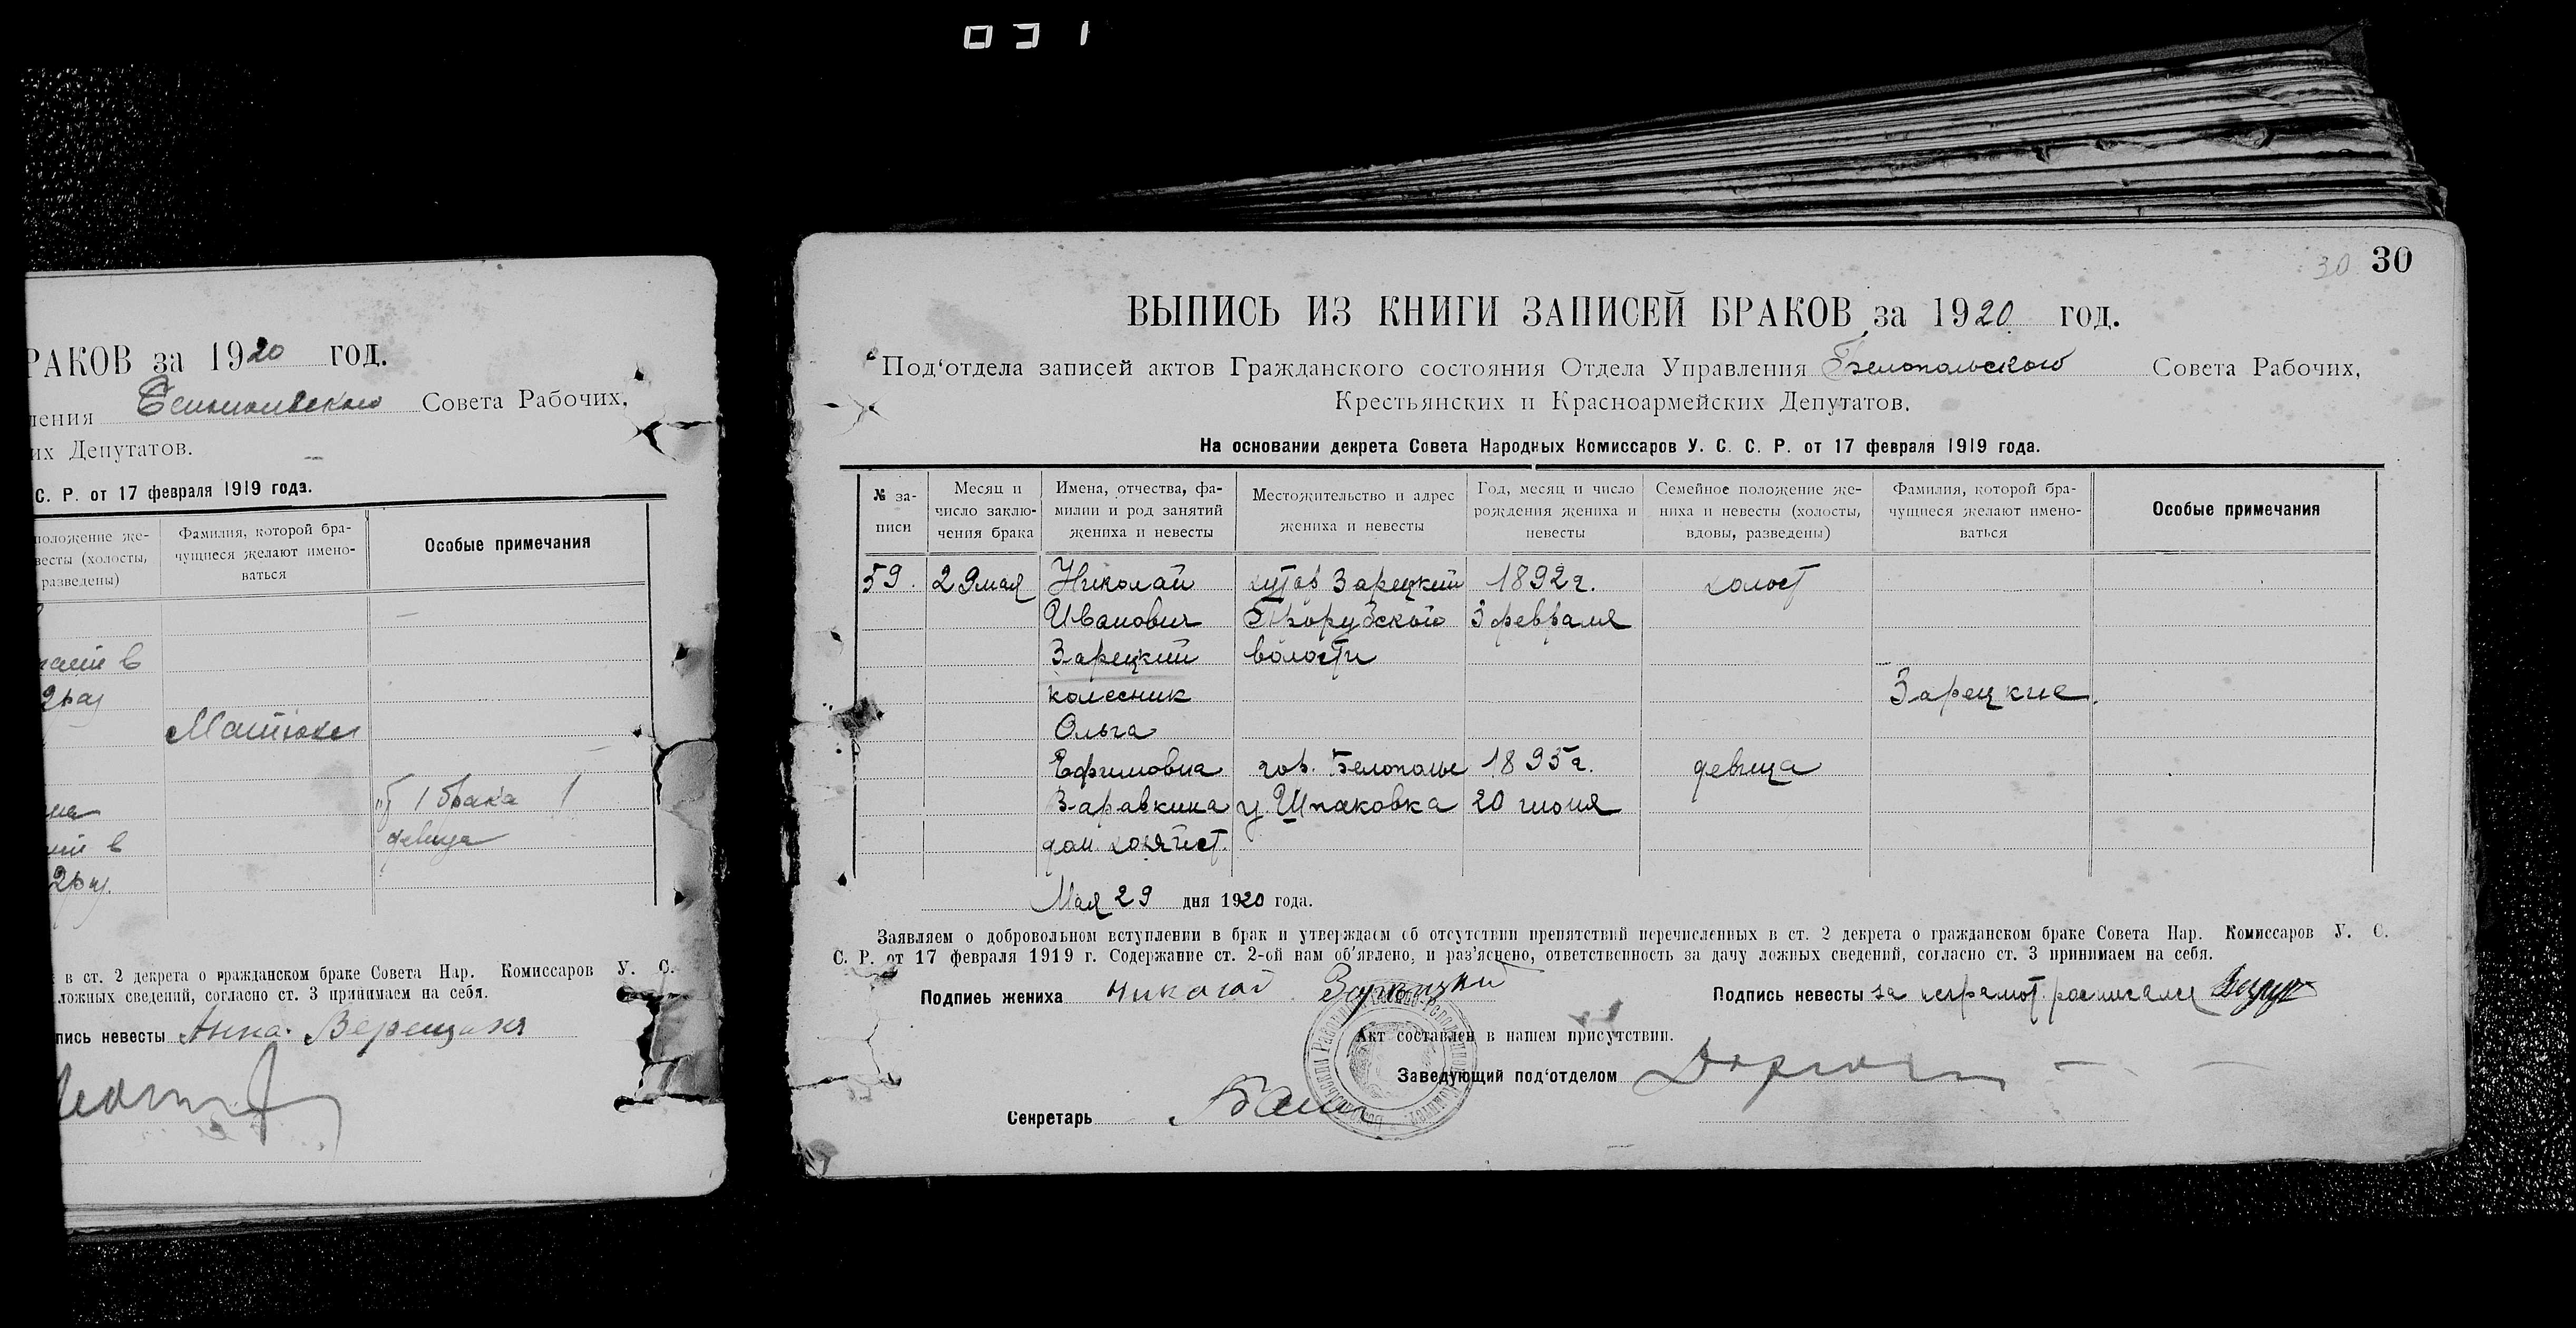 031
РАКОВ за 1920 год.
ления Белопольского Совета Рабочих,
их Депутатов.
С. Р. от 17 февраля 1919 года.
положение же-
весты (холосты,
разведены)
Фамилия, которой бра-
чущиеся желают имено-
ваться
Особые примечания
1 брака
девица
в ст. 2 декрета о гражданском браке Совета Нар. Комиссаров У. С.
ложных сведений, согласно ст. 3 принимаем на себя.
пись невесты Анна
30 30
ВЫПИСЬ ИЗ КНИГИ ЗАПИСЕЙ БРАКОВ за 1920 год.
Под‘отдела записей актов Гражданского состояния Отдела Управления Белопольского Совета Рабочих,
Крестьянских и Красноармейских Депутатов.
На основании декрета Совета Народных Комиссаров У. С. С. Р. от 17 февраля 1919 года.
№ за-
писи
Месяц и
число заклю-
чения брака
Имена, отчества, фа-
милии и род занятий
жениха и невесты
Местожительство и адрес
жениха и невесты
Год, месяц и число
рождения жениха и
невесты
Семейное положение же-
ниха и невесты (холосты,
вдовы, разведены)
Фамилия, которой бра-
чущиеся желают имено-
ваться
Особые примечания
59. 29 мая Николай хутор Зарецкий 1892 г. холост
Иванович 3 февраля
Зарецкий волости
колесник Зарецкие.
Ольга
Ефимовна гор. Белополье 1895 г. девица
Заравкина у. Шпаковка 20 июня
дом. хозяйст.
Мая 29 дня 1920 года.
Заявляем о добровольном вступлении в брак и утверждаем об отсутствии препятствий перечисленных в ст. 2 декрета о гражданском браке Совета Нар. Комиссаров У. С.
С. Р. от 17 февраля 1919 г. Содержание ст. 2-ой нам об‘явлено, и раз‘яснено, ответственность за дачу ложных сведений, согласно ст. 3 принимаем на себя.
Подпись жениха Николай Зарецкий Подпись невесты за неграмот. росписался
Акт составлен в нашем присутствии.
Заведующий под‘отделом
Секретарь